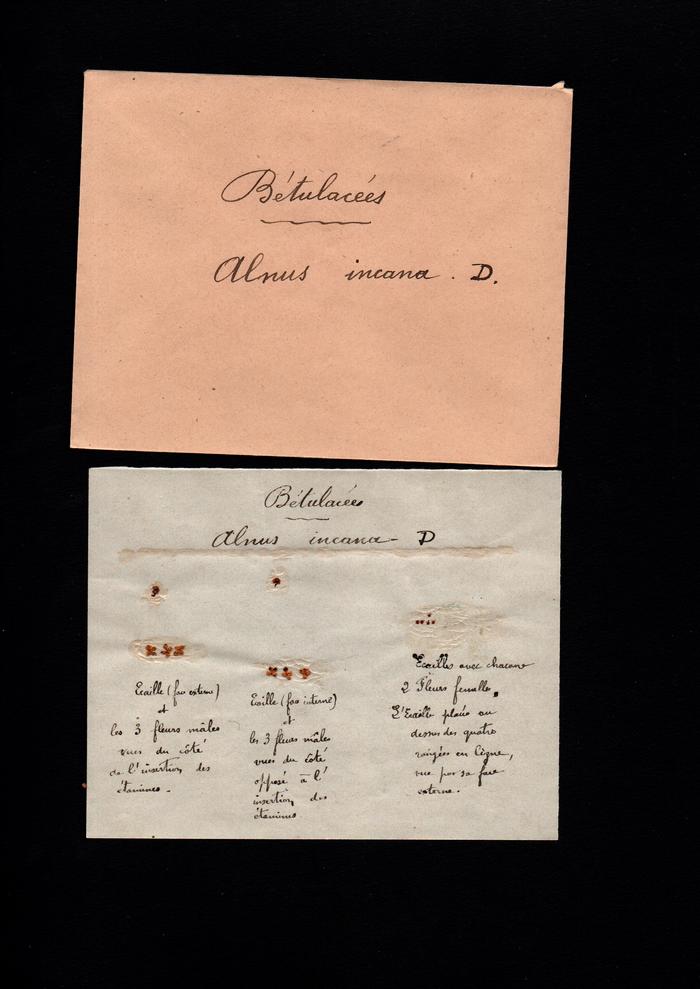 Bétulacées
Alnus incana. D.
Bétulacées
Alnus incana - D
Ecaille (face externe)
et
les 3 fleurs mâles
vues du côté
de l'insertion des
étamines.
Ecaille (face interne)
et
les 3 fleurs mâles
vues du côté
opposé à l'
insertion des
étamines
Ecailles avec chacune
2 Fleurs femelles.
L'Ecaille placée au
dessus des quatre
rangées en ligne,
vue par sa face
externe.